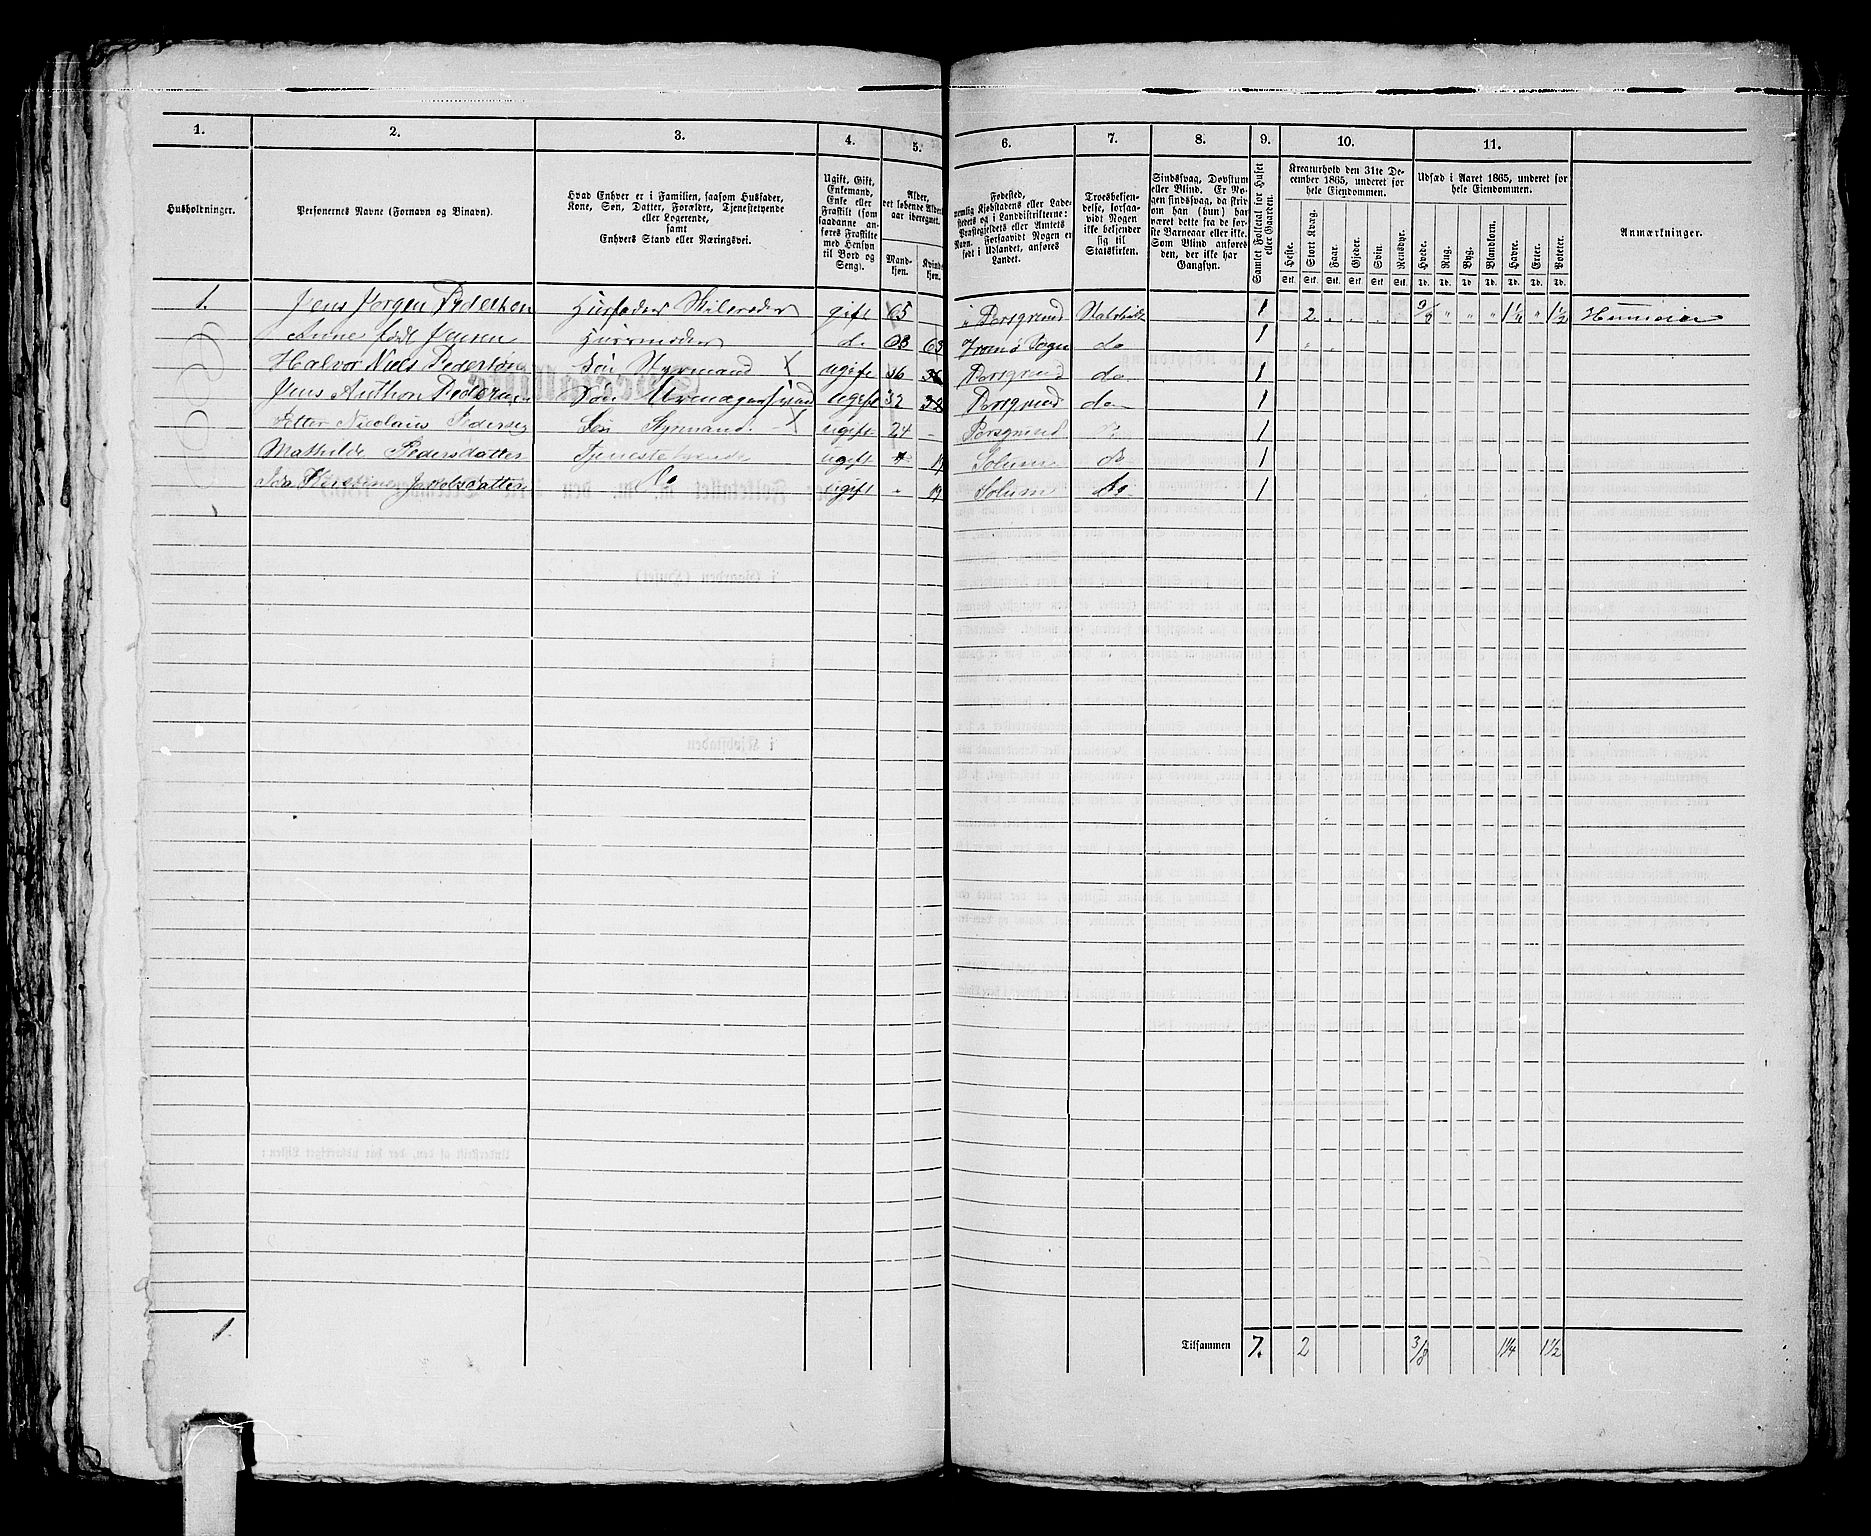 1.
2.
3.
4.
5.
6.
7.
8.
9.
10.
11.
Husholdninger.
Personernes Navne (Fornavn og Binavn).
Hvad Enhver er i Familien, saasom Husfader,
Kone, Søn, Datter, Forældre, Tjenestetyende
eller Logerende,
samt
Enhvers Stand eller Næringsvei.
Ugift, Gift,
Enkemand,
Enke eller
Fraskilt (som
saadanne an-
føres Fraskilte
med Hensyn
til Bord og
Seng).
Alder,
det løbende Alders-
aar iberegnet.
Mand-
kjøn.
Kvinde-
kjøn.
Fødested,
nemlig Kjøbstadens eller Lade-
stedets og i Landdistrikterne:
Præstegjeldets eller Amtets
Navn. Forsaavidt Nogen er
født i Udlandet, anføres
Landet.
Troesbekjen-
delse, forsaa-
vidt Nogen
ikke bekjender
sig til
Statskirken.
Sindssvag, Døvstum
eller Blind. Er No-
gen sindssvag, da skriv
om han (hun) har
været dette fra de før-
ste Barneaar eller ikke.
Som Blind anføres
den, der ikke har
Gangsyn.
Samlet Folketal for Huset
eller Gaarden.
Kreaturhold den 31te De-
cember 1865, underet for
hele Eiendommen.
Heste.
Stort Kvæg.
Faar.
Gjeder.
Svin.
Rensdyr.
Stk. Stk. Stk. Stk. Stk. Stk.
Udsæd i Aaret 1865, underet for
hele Eiendommen.
Hvede.
Rug.
Byg.
Blandkorn.
Havre.
Erter.
Poteter.
Td. Td. Td. Td. Td. Td. Td.
Anmærkninger.
1. Jens Jørgen Pedersen Husfader gift 65 Porsgrund 1 2 1 1/4 1 1/2
Anne født Jensen Husmoder do 63 Tromø Sogn do 1
Halvor Niels Pedersen Søn Styrmand X ugift 36 Porsgrund do 1
Jens Anthon Pedersen Søn ugift 32 Porsgrund do 1
Petter Nicolaus Pedersen Søn Styrmand X ugift 24 - Porsgrund 1
Mathilde Pedersdatter Tjenestetyende ugift 19 Solum do 1
Kirstine Do ugift - 19 Solum do 1
1.
Tilsammen 7. 2 3/8 1 1/4 1 1/2